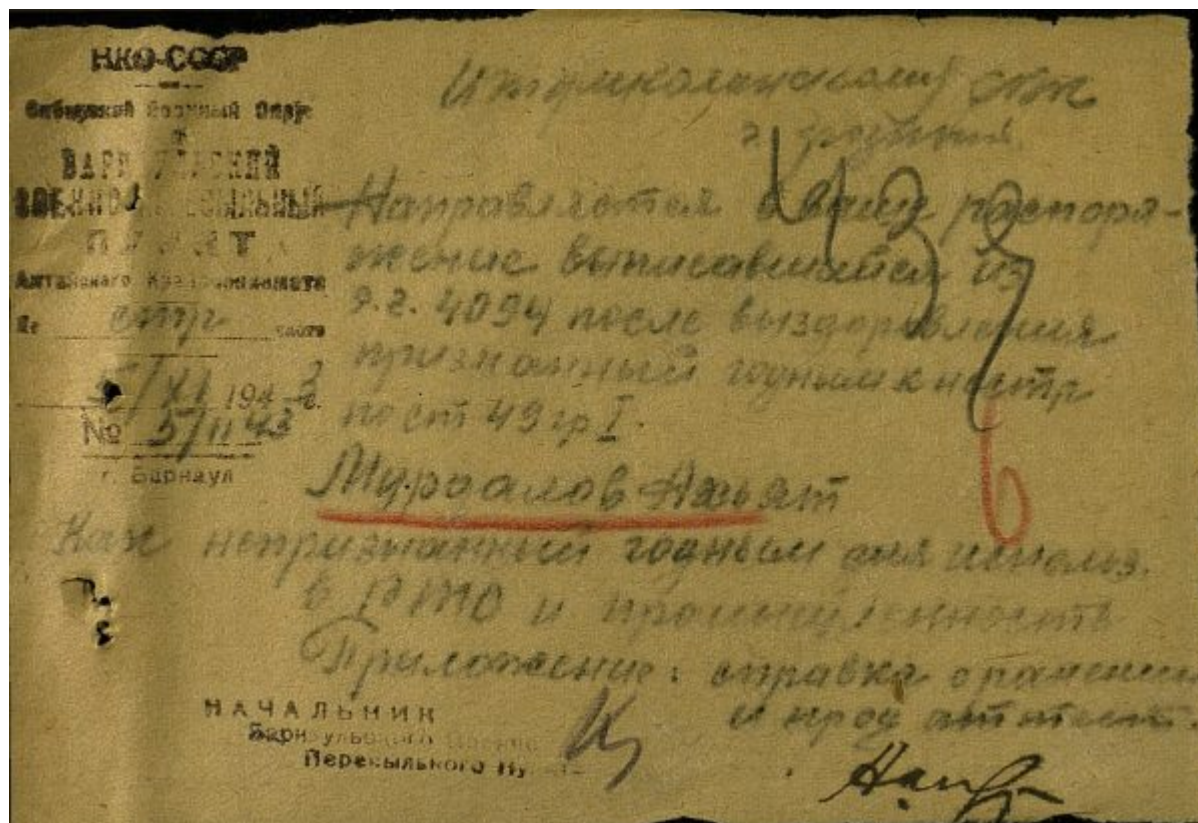 НКО-СССР
Сибирский Военный Округ
БАРНАУЛЬСКИЙ
ВОЕННО-ПЕРЕСЫЛЬНЫЙ
ПУНКТ
Алтайского Крайвоенкомата
стр
5/XI 1943 г.
№ 5/11 43
г. Барнаул
Итумкалинскому
г.
Направляется в ваше распоря-
жение выписавшийся из
э.г. 4094 после выздоровления
признанный годным к нестр
по ст 49 гр I.
Мурдалов
Как непризнанный годным для использ.
в и промышленность
Приложение: справка о ранении
и прод аттестат.
НАЧАЛЬНИК
Барнаульского Военно
Пересыльного Пункта